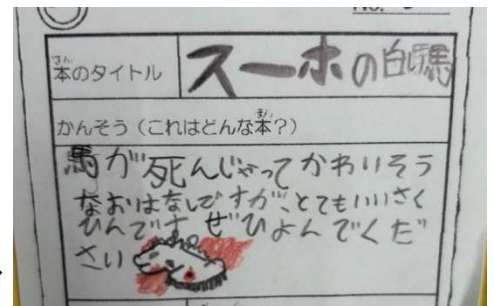 本のタイトル
スーホの白馬
かんそう（これはどんな本？）
馬が死んじゃってかわいそう
なおはなしですが、とてもいいさく
ひんです。ぜひよんでくだ
さい